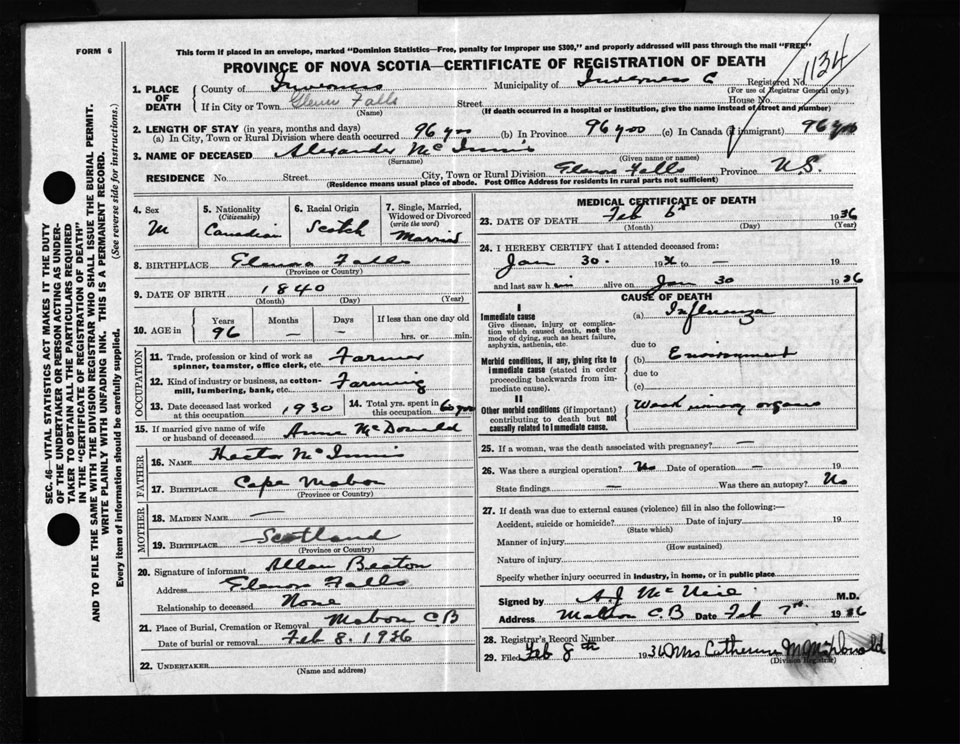 FORM 6
This form if placed in an envelope, marked "Dominion Statistics—Free, penalty for improper use $300," and properly addressed will pass through the mail "FREE"
PROVINCE OF NOVA SCOTIA—CERTIFICATE OF REGISTRATION OF DEATH
1134
1. PLACE OF DEATH
County of Inverness Municipality of Inverness C Registered No.
(For use of Registrar General only)
If in City or Town Falls Street House No.
(Name) (If death occurred in a hospital or institution, give the name instead of street and number)
2. LENGTH OF STAY (in years, months and days)
(a) In City, Town or Rural Division where death occurred 96 yrs (b) In Province 96 yrs (c) In Canada (if immigrant) 96 yrs
3. NAME OF DECEASED Alexander McInnis
(Surname) (Given name or names)
RESIDENCE No. Street City, Town or Rural Division Falls Province
(Residence means usual place of abode. Post Office Address for residents in rural parts not sufficient)
4. Sex
M
5. Nationality
(Citizenship)
Canadian
6. Racial Origin
Scotch
7. Single, Married, Widowed or Divorced
(write the word)
Married
8. BIRTHPLACE Falls
(Province or Country)
9. DATE OF BIRTH 1840
(Month) (Day) (Year)
10. AGE in
Years Months Days If less than one day old
96 — — hrs. or min.
OCCUPATION
11. Trade, profession or kind of work as spinner, teamster, office clerk, etc. Farmer
12. Kind of industry or business, as cotton-mill, lumbering, bank, etc. Farming
13. Date deceased last worked at this occupation 1930
14. Total yrs. spent in this occupation 60 yrs
15. If married give name of wife or husband of deceased Anna McDonald
FATHER
16. NAME Hector McInnis
17. BIRTHPLACE Cape Mabou
(Province or Country)
MOTHER
18. MAIDEN NAME —
19. BIRTHPLACE Scotland
(Province or Country)
20. Signature of informant Allan Beaton
Address Falls
Relationship to deceased None
21. Place of Burial, Cremation or Removal Mabou CB
Date of burial or removal Feb 8. 1936
22. UNDERTAKER
(Name and address)
MEDICAL CERTIFICATE OF DEATH
23. DATE OF DEATH Feb 6th 1936
(Month) (Day) (Year)
24. I HEREBY CERTIFY that I attended deceased from:
Jan 30. 1936 to — 19
and last saw him alive on Jan 30 1936
CAUSE OF DEATH
I
Immediate cause
Give disease, injury or complication which caused death, not the mode of dying, such as heart failure, asphyxia, asthenia, etc.
(a) Influenza
due to
Morbid conditions, if any, giving rise to immediate cause (stated in order proceeding backwards from immediate cause).
(b) Environment
due to
(c)
II
Other morbid conditions (if important) contributing to death but not causally related to immediate cause.
organs
25. If a woman, was the death associated with pregnancy? —
26. Was there a surgical operation? No Date of operation — 19
State findings — Was there an autopsy? No
27. If death was due to external causes (violence) fill in also the following:—
Accident, suicide or homicide? Date of injury 19
(State which)
Manner of injury
(How sustained)
Nature of injury
Specify whether injury occurred in industry, in home, or in public place
Signed by A.J. McNeil M.D.
Address C.B Date Feb 7th 1936
28. Registrar's Record Number
29. Filed Feb 8th 1936 Mrs Catherine M McDonald
(Division Registrar)
SEC. 46— VITAL STATISTICS ACT MAKES IT THE DUTY OF THE UNDERTAKER OR PERSON ACTING AS UNDERTAKER TO OBTAIN ALL THE PARTICULARS REQUIRED IN THE "CERTIFICATE OF REGISTRATION OF DEATH" AND TO FILE THE SAME WITH THE DIVISION REGISTRAR WHO SHALL ISSUE THE BURIAL PERMIT.
WRITE PLAINLY WITH UNFADING INK. THIS IS A PERMANENT RECORD.
Every item of information should be carefully supplied. (See reverse side for instructions.)